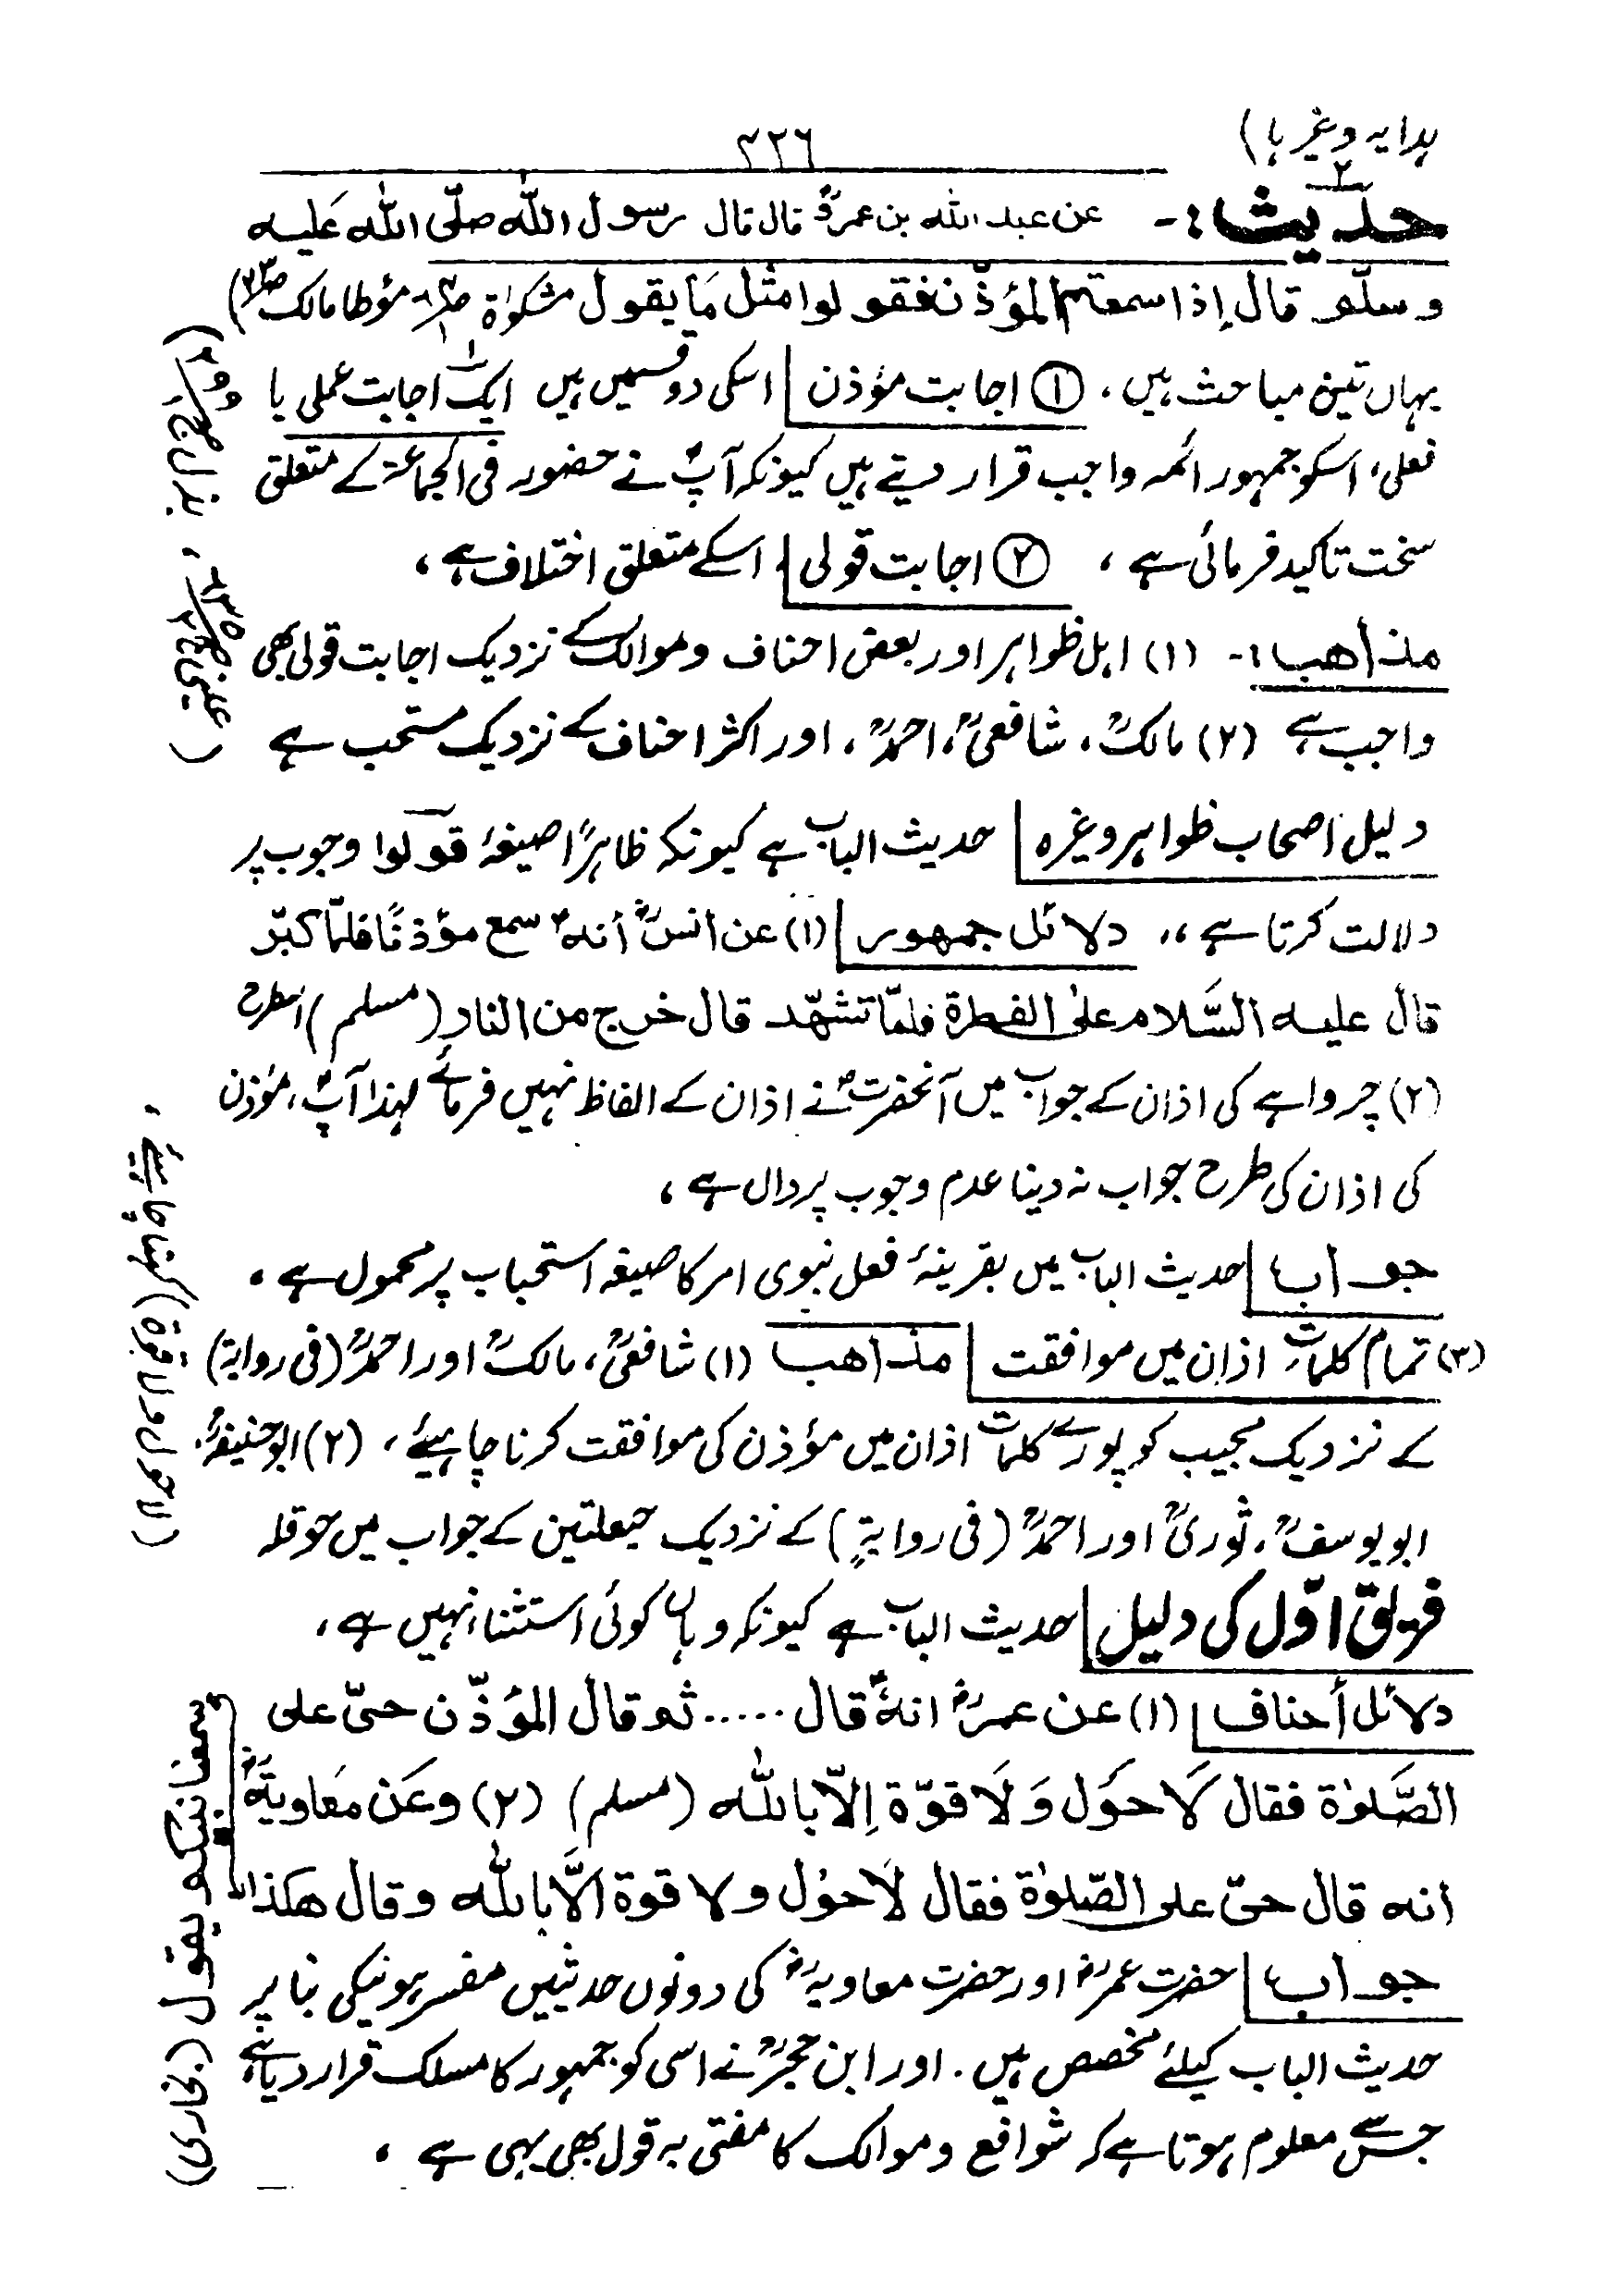 ہدایہ وغیرہا)
۳۲۶
حدیث:- عن عبد اللہ بن عمروؓ قال قال رسول اللہ صلّی اللہ علیہ
وسلّم قال إذا سمعتم المؤذّن فقولوا مثل مَا یقول مشکوٰۃ مؤطا مالک
یہاں تین مباحث ہیں، ① اجابت مؤذن اسکی دو قسمیں ہیں ایک اجابت عملی یا
فعلی، اسکو جمہور ائمہ واجب قرار دیتے ہیں کیونکہ آپؐ نے حضور فی الجماعۃ کے متعلق
سخت تاکید فرمائی ہے، ② اجابت قولی اسکے متعلق اختلاف ہے،
مذاهب:- (۱) اہل ظواہر اور بعض احناف وموالک کے نزدیک اجابت قولی بھی
واجب ہے (۲) مالکؒ، شافعیؒ، احمدؒ، اور اکثر احناف کے نزدیک مستحب ہے
دلیل اصحاب ظواہر وغیرہ حدیث الباب ہے کیونکہ ظاہرًا صیغۂ قولوا وجوب پر
دلالت کرتا ہے،، دلائل جمہور (۱) عن انسؓ أنہؐ سمع مؤذنًا فلمّا کبّر
قال علیہ السَّلام علیٰ الفطرۃ فلمّا تشهّد قال خرج من النار (مسلم) اسطرح
(۲) چرواہے کی اذان کے جواب میں آنحضرتؐ نے اذان کے الفاظ نہیں فرمائے لہذا آپؐ، مؤذن
کی اذان کی طرح جواب نہ دینا عدم وجوب پر دال ہے،
جواب حدیث الباب میں بقرینۂ فعل نبوی امر کا صیغہ استحباب پر محمول ہے،
(۳) تمام کلماتِ اذان میں موافقت مذاهب (۱) شافعیؒ، مالکؒ اور احمدؒ (فی روایۃ)
کے نزدیک مجیب کو پورے کلمات اذان میں مؤذن کی موافقت کرنا چاہیئے، (۲) ابو حنیفہؒ،
ابو یوسفؒ، ثوریؒ اور احمدؒ (فی روایۃٍ) کے نزدیک حیعلتین کے جواب میں حوقلہ
(لاحول ولا قوۃ) کہنا چاہیئے،
فریق اوّل کی دلیل حدیث الباب ہے کیونکہ وہاں کوئی استثناء نہیں ہے،
دلائل أحناف (۱) عن عمرؓ انہؐ قال ..... ثم قال المؤذّن حیّ علی
الصَّلوٰۃ فقال لَا حَول وَلَا قوّۃ إلّا باللہ (مسلم) (۲) وعَن معَاویۃؓ
أنہ قال حیّ علی الصّلوٰۃ فقال لَا حول ولا قوۃ الَّا باللہ وقال ھکذا
سمعنا نبیکم یقول (بخاری)
جواب حضرت عمرؓ اور حضرت معاویہؓ کی دونوں حدیثیں مفسر ہونیکی بنا پر
حدیث الباب کیلئے مخصص ہیں. اور ابن حجرؒ نے اسی کو جمہور کا مسلک قرار دیا ہے
جس سے معلوم ہوتا ہے کہ شوافع وموالک کا مفتی بہ قول بھی یہی ہے،